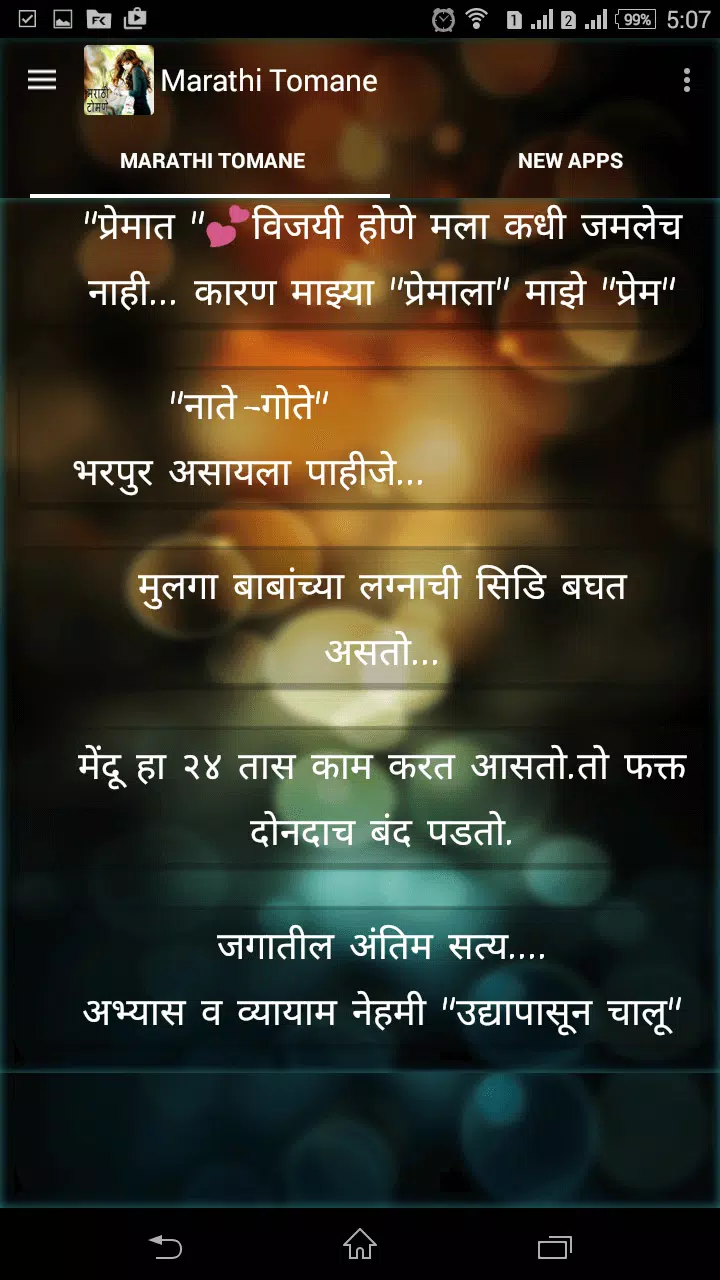 1 2 99% 5:07
मराठी
टोमणे
Marathi Tomane
MARATHI TOMANE NEW APPS
"प्रेमात "💕विजयी होणे मला कधी जमलेच
नाही... कारण माझ्या "प्रेमाला" माझे "प्रेम"
"नाते-गोते"
भरपुर असायला पाहीजे...
मुलगा बाबांच्या लग्नाची सिडि बघत
असतो...
मेंदू हा २४ तास काम करत आसतो.तो फक्त
दोनदाच बंद पडतो.
जगातील अंतिम सत्य....
अभ्यास व व्यायाम नेहमी "उद्यापासून चालू"